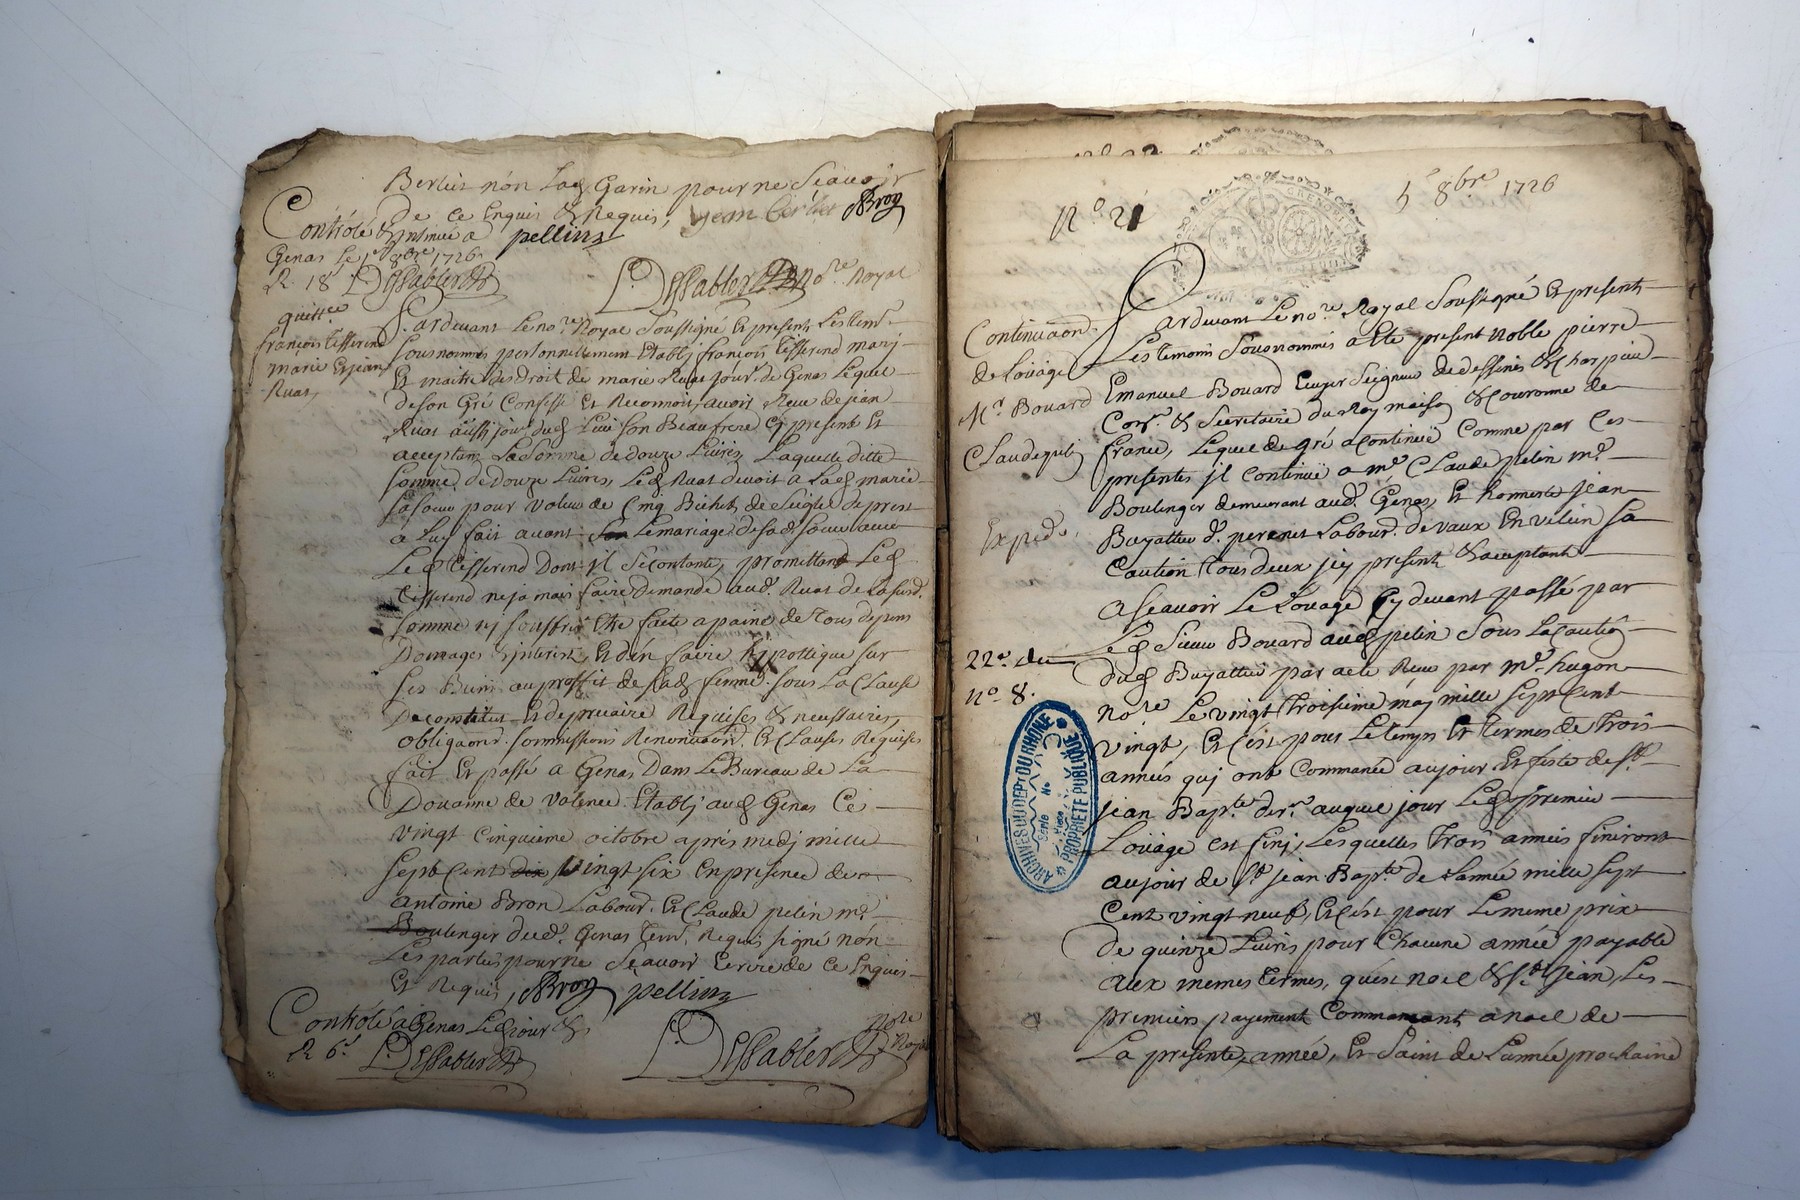 Berliet nón Lad Garin pour ne Scavoir
De ce Enquis & Requis, jean Berliet Bron
Contrôlé & insinué a pellin
Genas Le 1er 8bre 1726
R. 18s Dessables
L. Dessables Nore Royal
quittce
françois Tisserend
marie & jean
Ruat
Pardevant Le nore Royal Soussigné Et presents Les temr
Sousnommés personnellement Etablj françois Tisserend marj
Et maitre des Droit de marie Ruat jour. de Genas Lequel
de son Gré Confesse Et Reconnoit, avoir Reçu de jean
Ruat aussi jour. dud Lieu son Beaufrere Cy present Et
acceptant La Somme de douze Livres, Laquelle ditte
Somme de douze Livres, Led Ruat devoit a Lad marie
Sa soeur pour valeur de Cinq Bichets de Seigle de prest
a Luy fait avant Le mariage de sad soeur avec
Led Tisserend Dont jl Se contente, promettant Led
Tisserend ne jamais faire demande aud. Ruat de Lasusd.
Somme nj souffrir Etre faite a paine de Tous depens
Domages Et jnterest, Et d'en faire hypottique sur
Ses Biens au proffit de sad femme sous La Clause
De constitut Et de precaire Requises & necessaires,
obligaons. sommissions Renonciaons. Et Clauses Requises
fait Et passé a Genas Dans Le Bureau de La
Douanne de Valence Etablj aud Genas Ce
vingt Cinquieme octobre aprés medj mille
Sept Cent dix vingt six En presence de
antoine Bron Labour. Et Claude pelin me.
Boulenger dud. Genas Tem. Requis signé nón
Les parties pour ne Sçavoir Ecrire de Ce Enquis
Et Requis, Bron pellin
Contrôlé a Genas Led jour &
R 6s L. Dessables
L. Dessables Nore Royal
No 21
5 8bre 1726
Continuaon.
de Loüage
Mr. Bouard
Claude pelin
Expedé.
22e. du
no. 8.
Pardevant Le nore. Royal Soussigné Et presents
Les temoins Sousnommés a Eté present Noble pierre
Emanuel Bouard Ecuyer Seigneur de dessines & Charpieu
Conser. & Secretaire du Roy maison & Couronne de
france, Lequel de gré a Continué Comme par Ces
presentes jl Continuë a me Claude pelin me.
Boulenger demeurant aud. Genas, Et honneste jean
Buyattier d. perenet Labour. de vaux En velein sa
Caution Tous deux jcy presents & acceptants
a Scavoir Le Loüage Cy devant passé par
Led Sieur Bouard aud pelin Sous La Cautiō
dud Buyattier par acte Reçu par me. hugon
nore Le vingt troisieme maj mille sept Cent
vingt, Et C'est pour Le temps Et termes de Trois
années quj ont Commancée aujour Et feste de St.
jean Bapte. der. auquel jour Led premier
Loüage Est finj, Lesquelles Trois années finiront
aujour de St. jean Bapte. de L'année mille sept
Cent vingt neuf, Et C'est pour Le meme prix
de quinze Livres pour Chacune année payable
aux memes termes, quest noel & St. jean, Les
premiers payement Commancant a noel de
La presente, année, Et Saint de L'année prochaine
ARCHIVES DU DEPT DU RHONE
SERIE No
Pièce
PROPRIÉTÉ PUBLIQUE